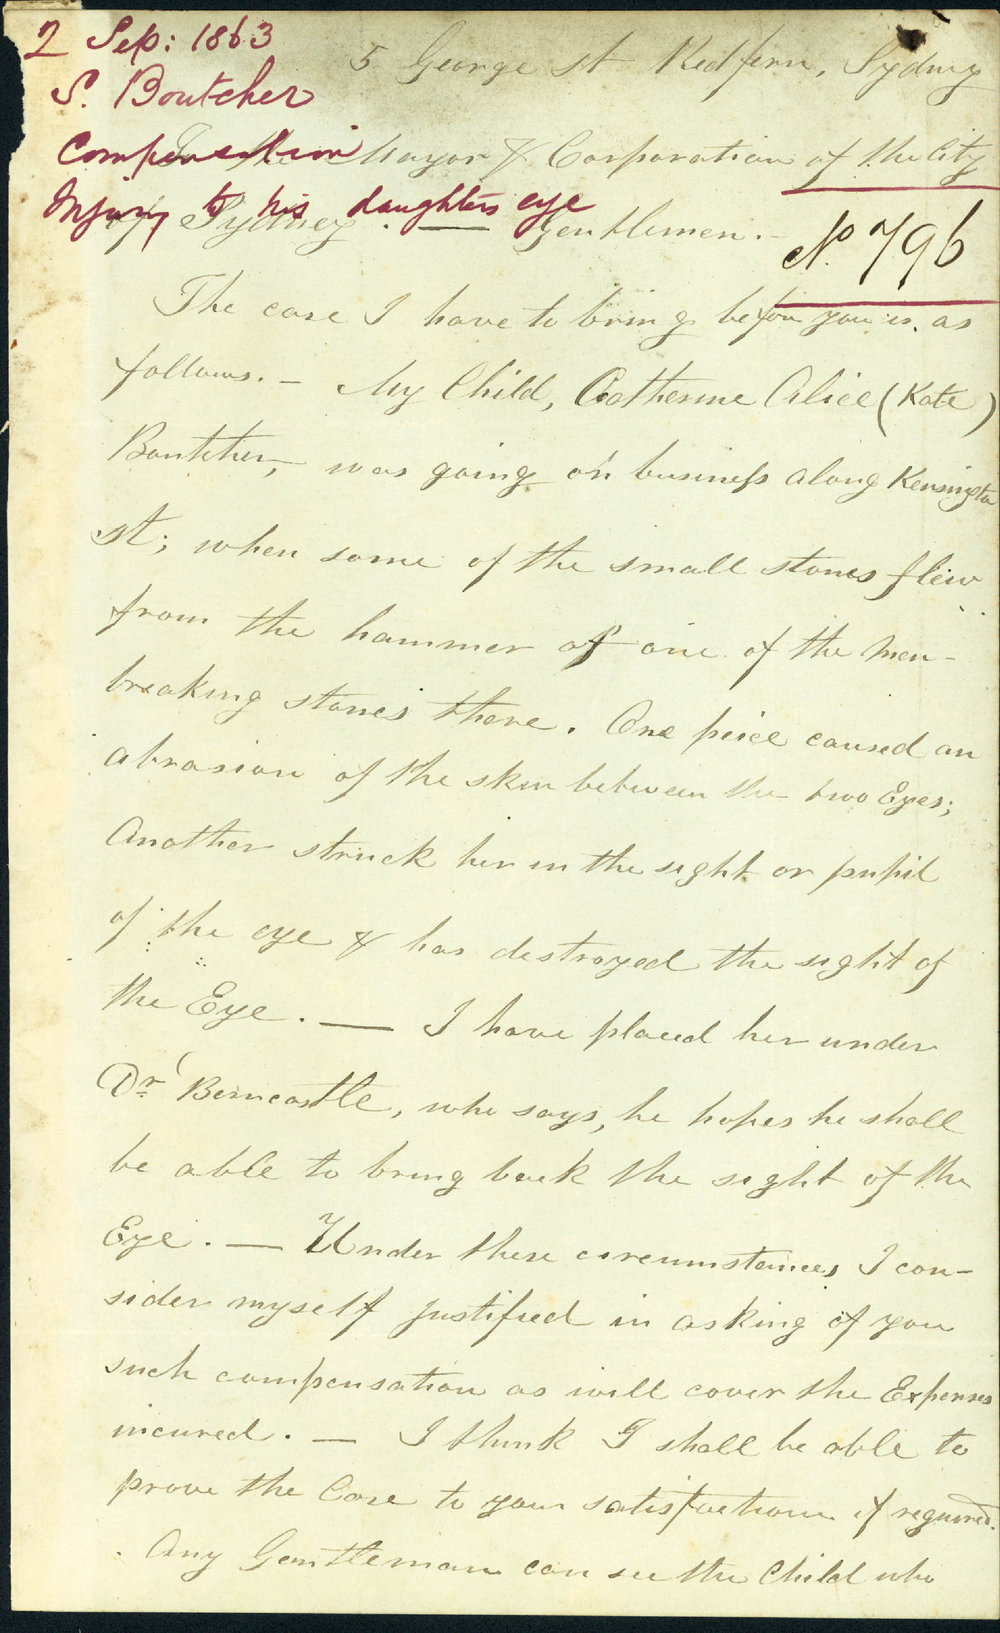 2 Sep: 1863
S. Boutcher
Compensation
Injury to his daughters eye
5 George st Redfern, Sydney
To the Mayor & Corporation of the City
of Sydney. — Gentlemen. —
No 796
The case I have to bring before you is as
follows. — My Child, Catherine Alice (Kate)
Boutcher, was going on business along Kensington
St; when some of the small stones flew
from the hammer of one of the men
breaking stones there. One peice caused an
abrasion of the skin between the two Eyes;
Another struck her in the sight or pupil
of the eye & has destroyed the sight of
the Eye. — I have placed her under
Dr Berncastle, who says, he hopes he shall
be able to bring back the sight of the
Eye. — Under these circumstances I con-
sider myself justified in asking of you
such compensation as will cover the Expenses
incured. — I think I shall be able to
prove the Case to your satisfaction if required.
Any Gentleman can see the Child who